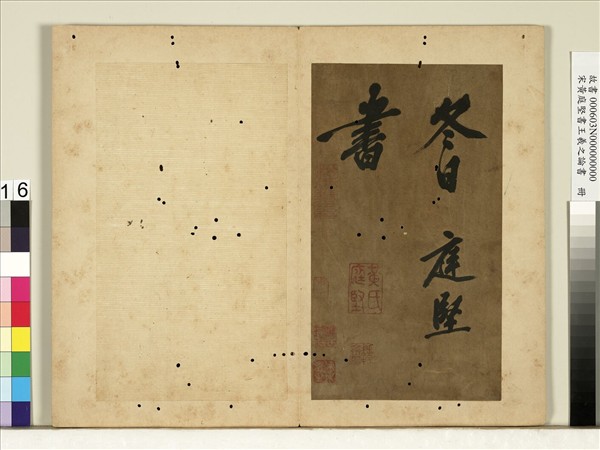 冬日 庭堅
書
黃氏
庭堅
故書 000603N000000000
宋黃庭堅書王羲之論書 冊
16